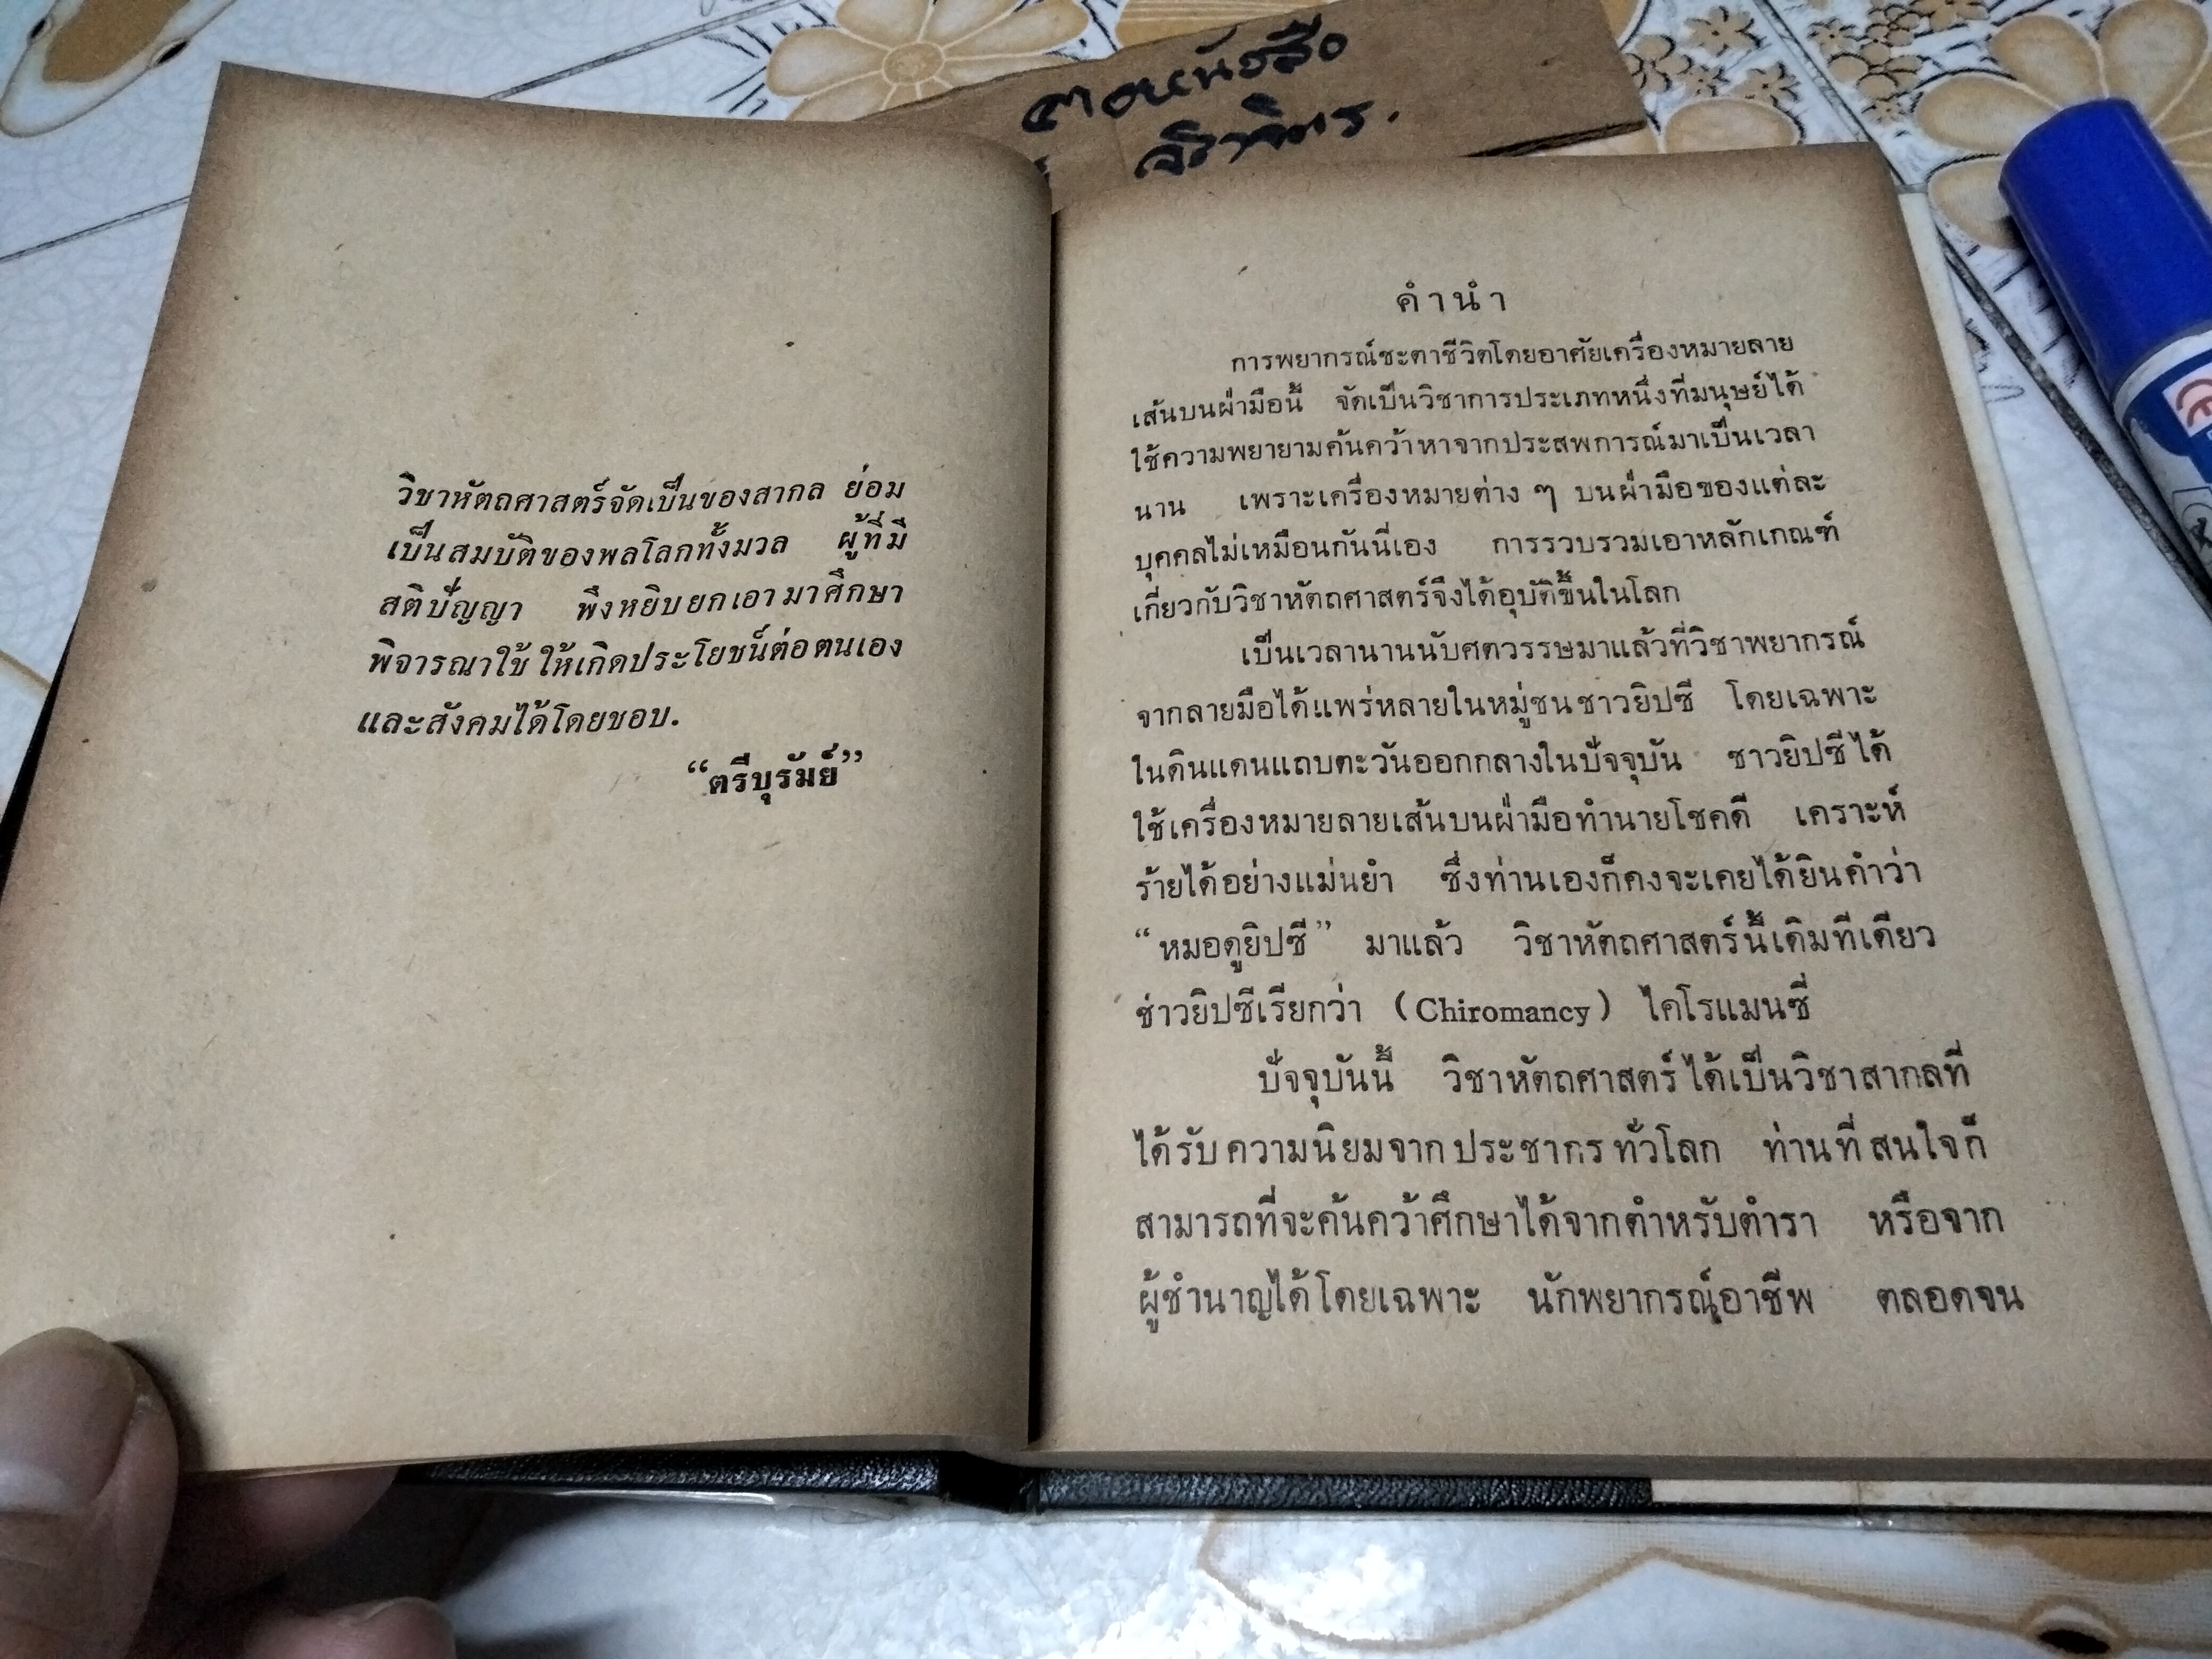 วิชาหัตถศาสตร์จัดเป็นของสากล ย่อม
เป็นสมบัติของพลโลกทั้งมวล ผู้ที่มี
สติปัญญา พึงหยิบยกเอามาศึกษา
พิจารณาใช้ให้เกิดประโยชน์ต่อตนเอง
และสังคมได้โดยชอบ.
“ตรีบุรัมย์”
คำนำ
การพยากรณ์ชะตาชีวิตโดยอาศัยเครื่องหมายลาย
เส้นบนฝ่ามือนี้ จัดเป็นวิชาการประเภทหนึ่งที่มนุษย์ได้
ใช้ความพยายามค้นคว้าหาจากประสพการณ์มาเป็นเวลา
นาน เพราะเครื่องหมายต่าง ๆ บนฝ่ามือของแต่ละ
บุคคลไม่เหมือนกันนี่เอง การรวบรวมเอาหลักเกณฑ์
เกี่ยวกับวิชาหัตถศาสตร์จึงได้อุบัติขึ้นในโลก
เป็นเวลานานนับศตวรรษมาแล้วที่วิชาพยากรณ์
จากลายมือได้แพร่หลายในหมู่ชนชาวยิปซี โดยเฉพาะ
ในดินแดนแถบตะวันออกกลางในปัจจุบัน ชาวยิปซีได้
ใช้เครื่องหมายลายเส้นบนฝ่ามือทำนายโชคดี เคราะห์
ร้ายได้อย่างแม่นยำ ซึ่งท่านเองก็คงจะเคยได้ยินคำว่า
“หมอดูยิปซี” มาแล้ว วิชาหัตถศาสตร์นี้เดิมทีเดียว
ช่าวยิปซีเรียกว่า (Chiromancy) ไคโรแมนซี่
ปัจจุบันนี้ วิชาหัตถศาสตร์ได้เป็นวิชาสากลที่
ได้รับความนิยมจากประชากรทั่วโลก ท่านที่สนใจก็
สามารถที่จะค้นคว้าศึกษาได้จากตำหรับตำรา หรือจาก
ผู้ชำนาญได้โดยเฉพาะ นักพยากรณ์อาชีพ ตลอดจน